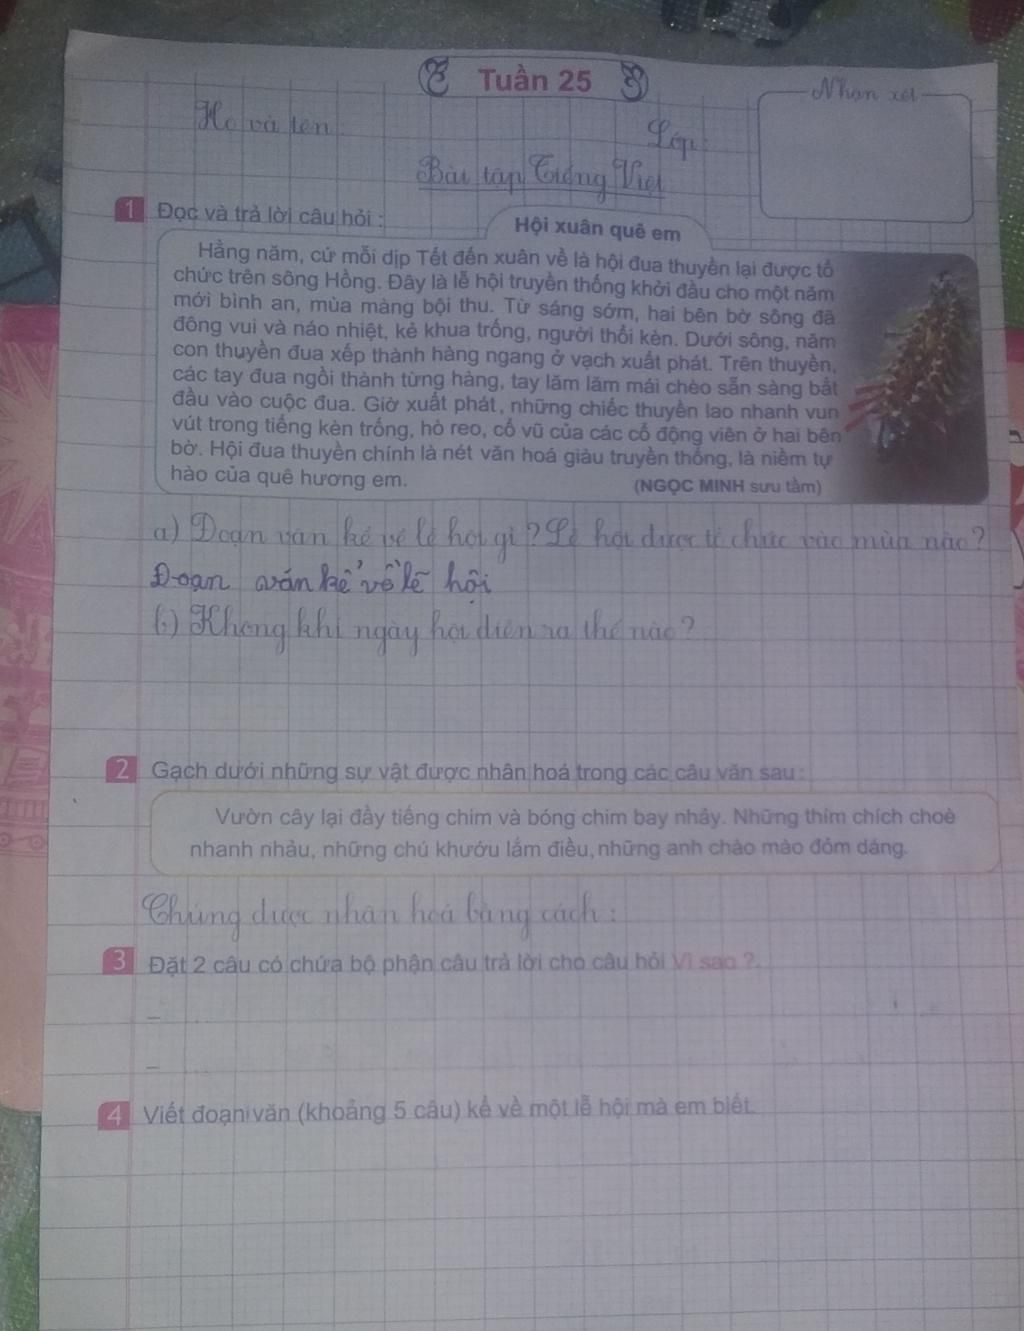 Tuần 25
Nhận xét
Họ và tên
Lớp:
Bài tập Tiếng Việt
1 Đọc và trả lời câu hỏi :
Hội xuân quê em
Hằng năm, cứ mỗi dịp Tết đến xuân về là hội đua thuyền lại được tổ
chức trên sông Hồng. Đây là lễ hội truyền thống khởi đầu cho một năm
mới bình an, mùa màng bội thu. Từ sáng sớm, hai bên bờ sông đã
đông vui và náo nhiệt, kẻ khua trống, người thổi kèn. Dưới sông, năm
con thuyền đua xếp thành hàng ngang ở vạch xuất phát. Trên thuyền,
các tay đua ngồi thành từng hàng, tay lăm lăm mái chèo sẵn sàng bắt
đầu vào cuộc đua. Giờ xuất phát, những chiếc thuyền lao nhanh vun
vút trong tiếng kèn trống, hò reo, cổ vũ của các cổ động viên ở hai bên
bờ. Hội đua thuyền chính là nét văn hoá giàu truyền thống, là niềm tự
hào của quê hương em.
(NGỌC MINH sưu tầm)
a) Đoạn văn kể về lễ hội gì? Lễ hội được tổ chức vào mùa nào?
Đoạn ván kể về lễ hội
b) Không khí ngày hội diễn ra thế nào?
2 Gạch dưới những sự vật được nhân hoá trong các câu văn sau :
Vườn cây lại đầy tiếng chim và bóng chim bay nhảy. Những thím chích choè
nhanh nhảu, những chú khướu lắm điều, những anh chào mào đỏm dáng.
Chúng được nhân hoá bằng cách :
3 Đặt 2 câu có chứa bộ phận câu trả lời cho câu hỏi Vì sao ?.
–
–
4 Viết đoạn văn (khoảng 5 câu) kể về một lễ hội mà em biết.